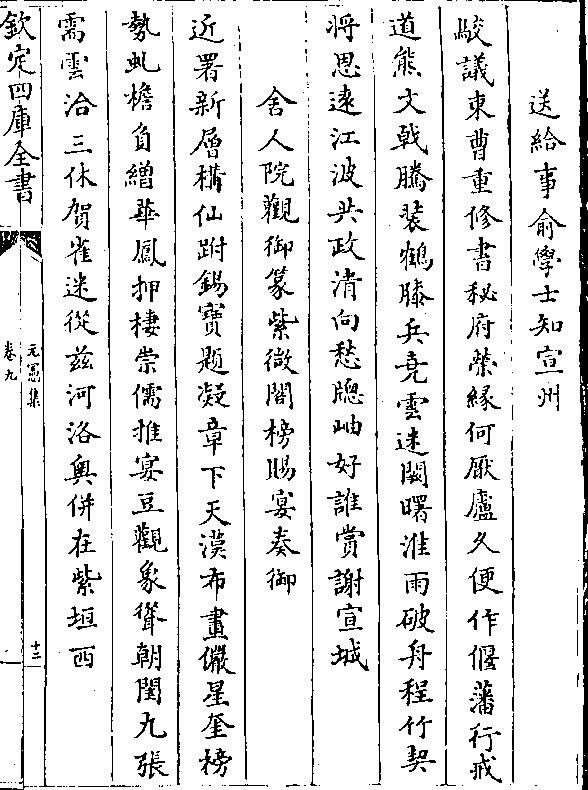 送給事俞學士知宣州
駮議東曹重修書秘府榮緣何厭廬久便作偃藩行戒
道熊文戟騰裝鶴膝兵堯雲迷闕曙淮雨破舟程竹契
將恩遠江波共政清向愁牕岫好誰賞謝宣城
舍人院觀御篆紫微閣榜賜宴奏御
近署新層構仙跗錫寶題凝章下天漠布畫儼星奎榜
勢虬檐負繒華鳳押棲崇儒推宴豆觀象聳朝閨九張
需雲洽三休賀雀迷從兹河洛奥併在紫垣西
欽定四庫全書
元憲集
卷九
十二